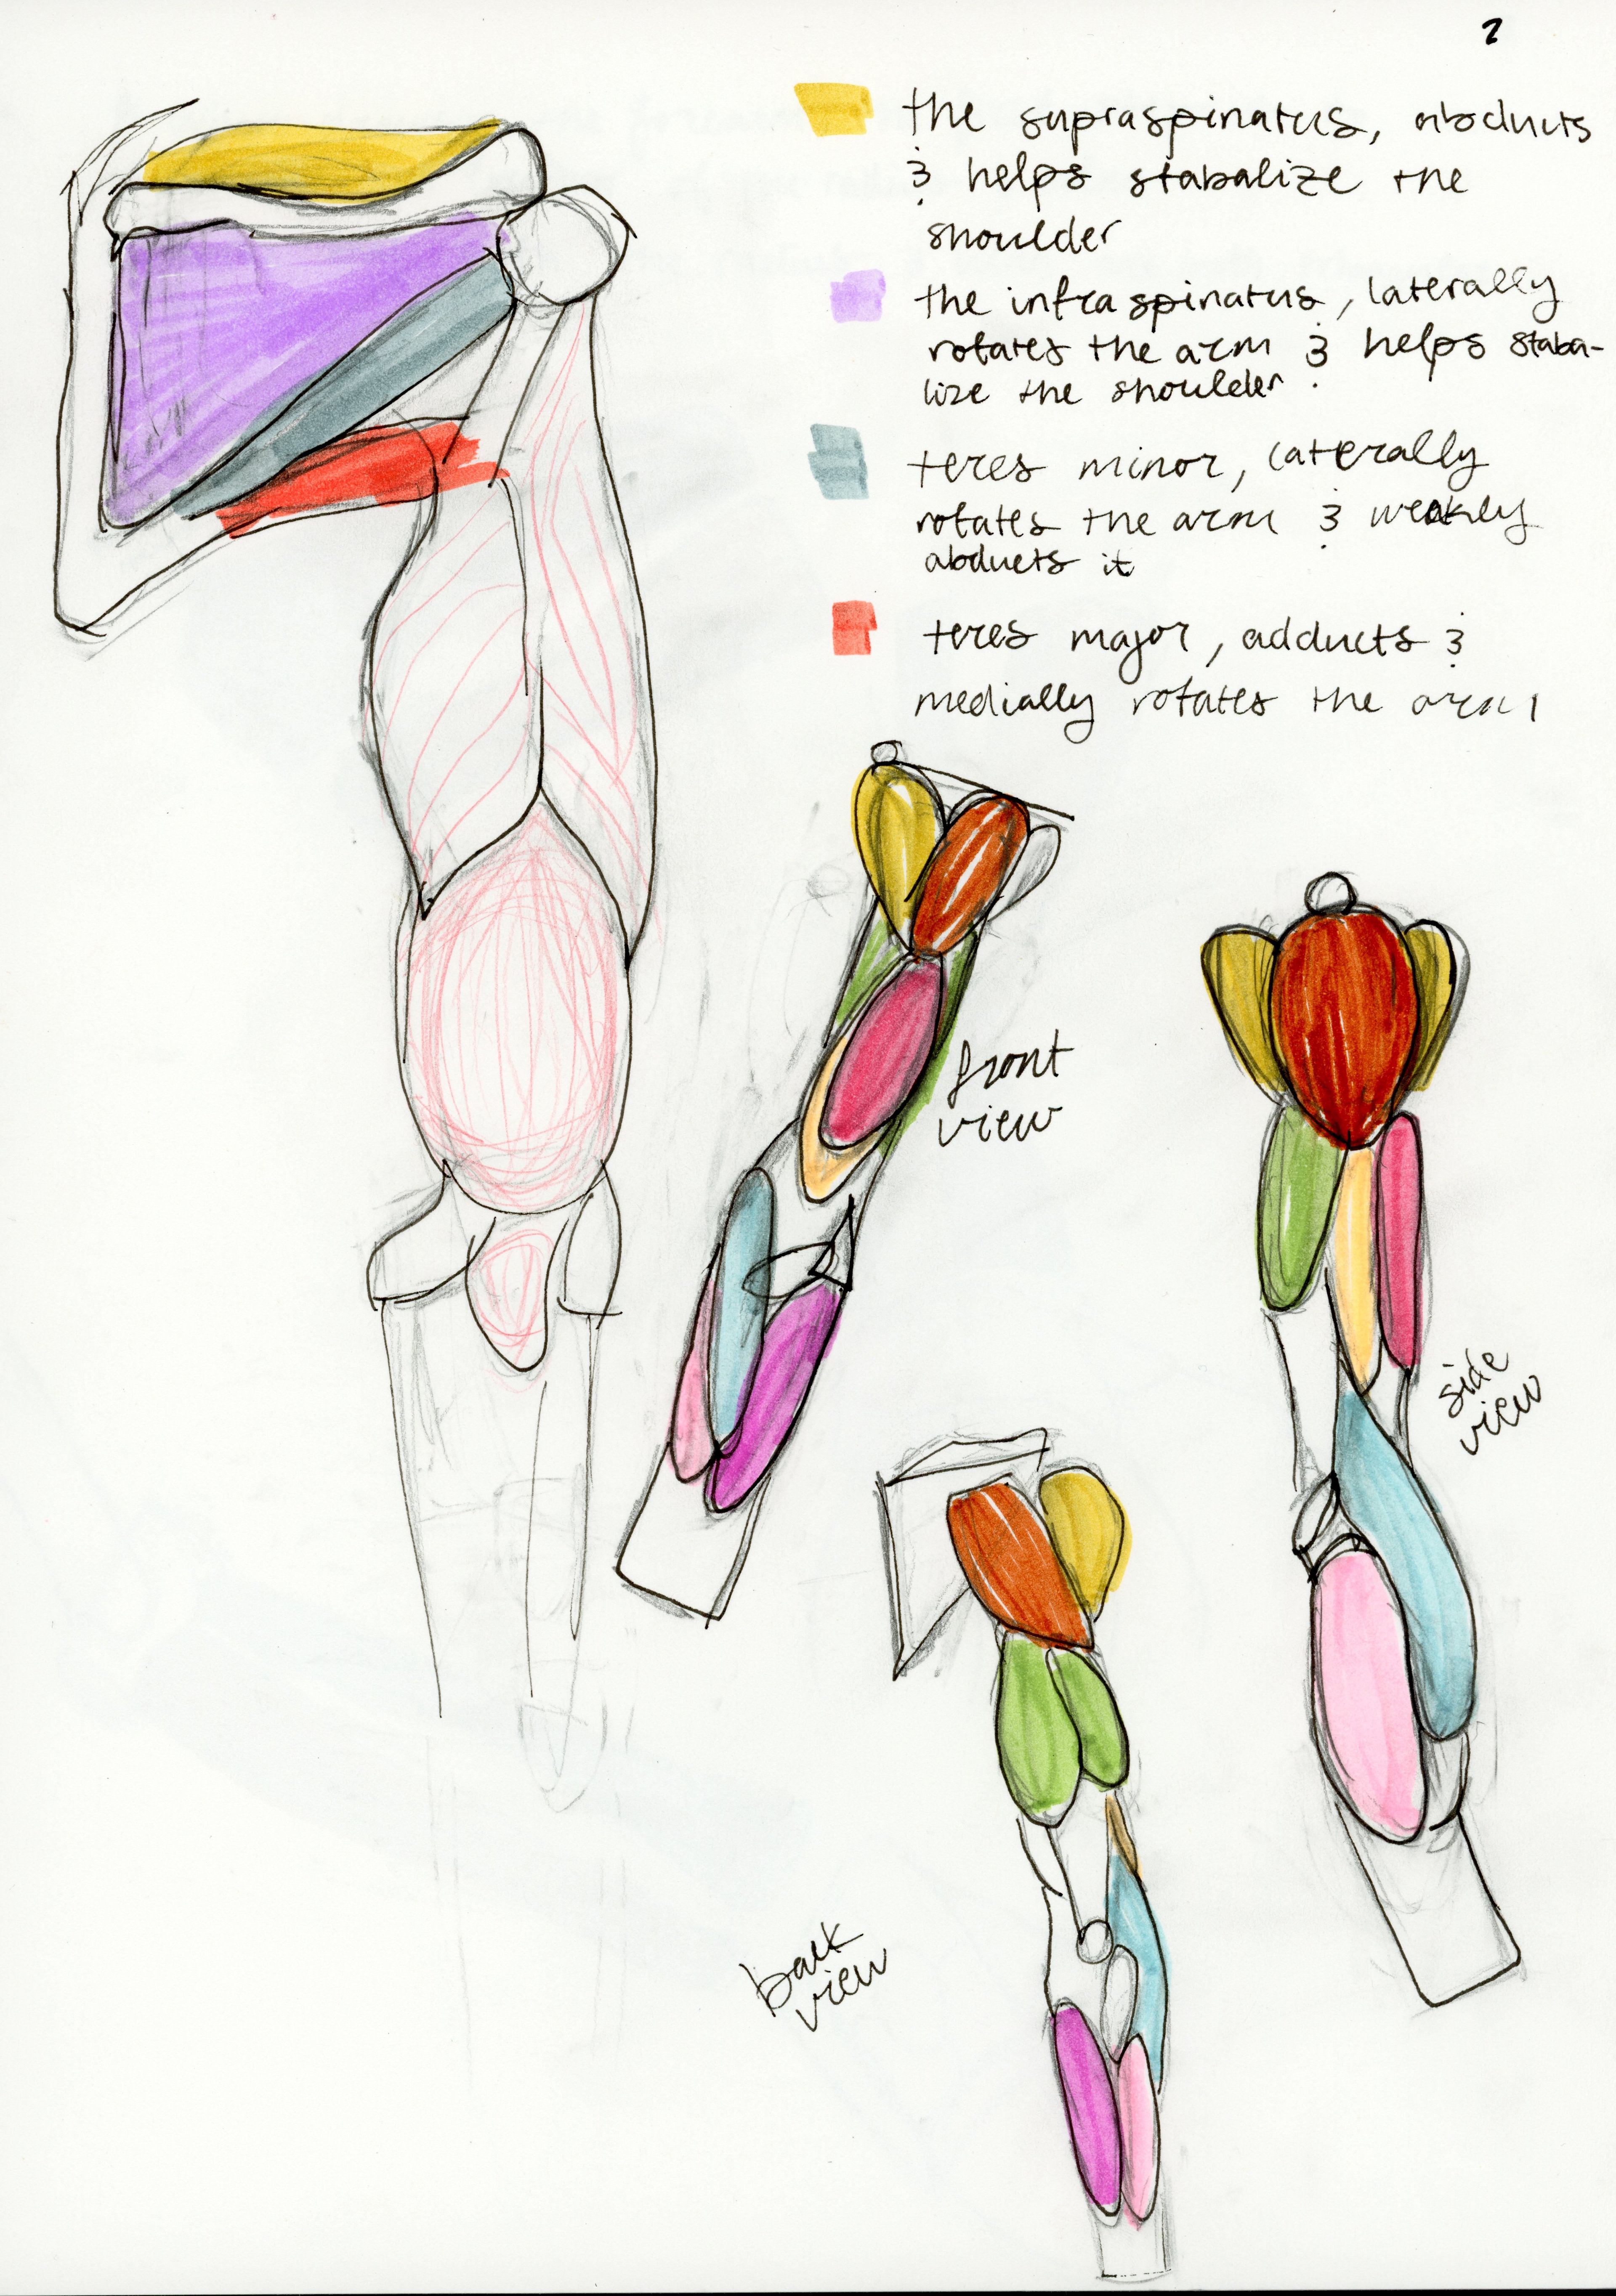 2
the supraspinatus, abducts
& helps stabalize the
shoulder
the infraspinatus, laterally
rotates the arm & helps staba-
lize the shoulder.
teres minor, laterally
rotates the arm & weakly
abducts it
teres major, adducts &
medially rotates the arm
front
view
side
view
back
view